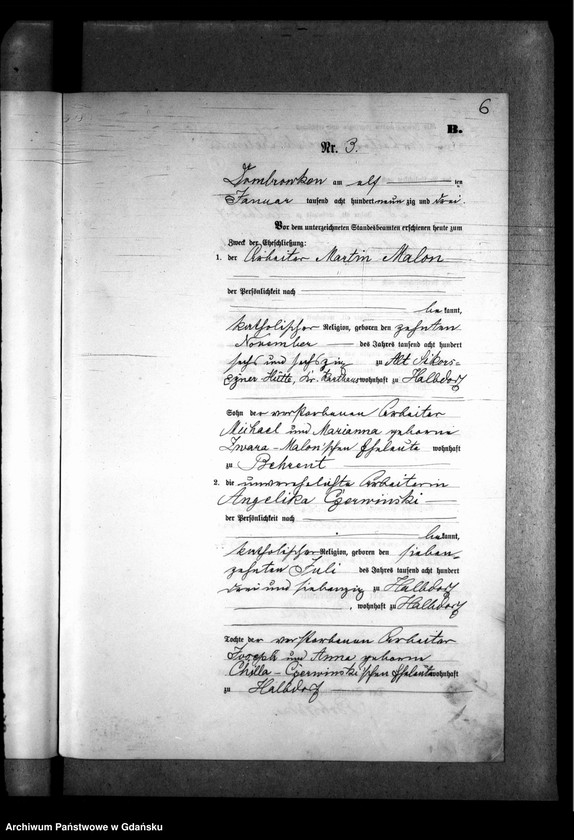 6
B.
Nr. 3.
Dombrowken am elf ten
Januar tausend acht hundert neun zig und drei.
Vor dem unterzeichneten Standesbeamten erschienen heute zum
Zweck der Eheschließung:
1. der Arbeiter Martin Malon
der Persönlichkeit nach
be kannt,
katholischer Religion, geboren den zehnten
November des Jahres tausend acht hundert
sechs und sechszig zu Alt Sikors-
czyner Hütte, Kr. Karthaus wohnhaft zu Halbdorf
Sohn der verstorbenen Arbeiter
Michael und Marianna geborne
Zwara-Malon'schen Eheleute wohnhaft
zu Behrent
2. die unverehelichte Arbeiterin
Angelika Czerwinski
der Persönlichkeit nach
be kannt,
katholischer Religion, geboren den sieben-
zehnten Juli des Jahres tausend acht hundert
drei und siebenzig zu Halbdorf
, wohnhaft zu Halbdorf
Tochter der verstorbenen Arbeiter
Joseph und Anna geborne
Chilla-Czerwinski'schen Eheleute wohnhaft
zu Halbdorf
Archiwum Państwowe w Gdańsku